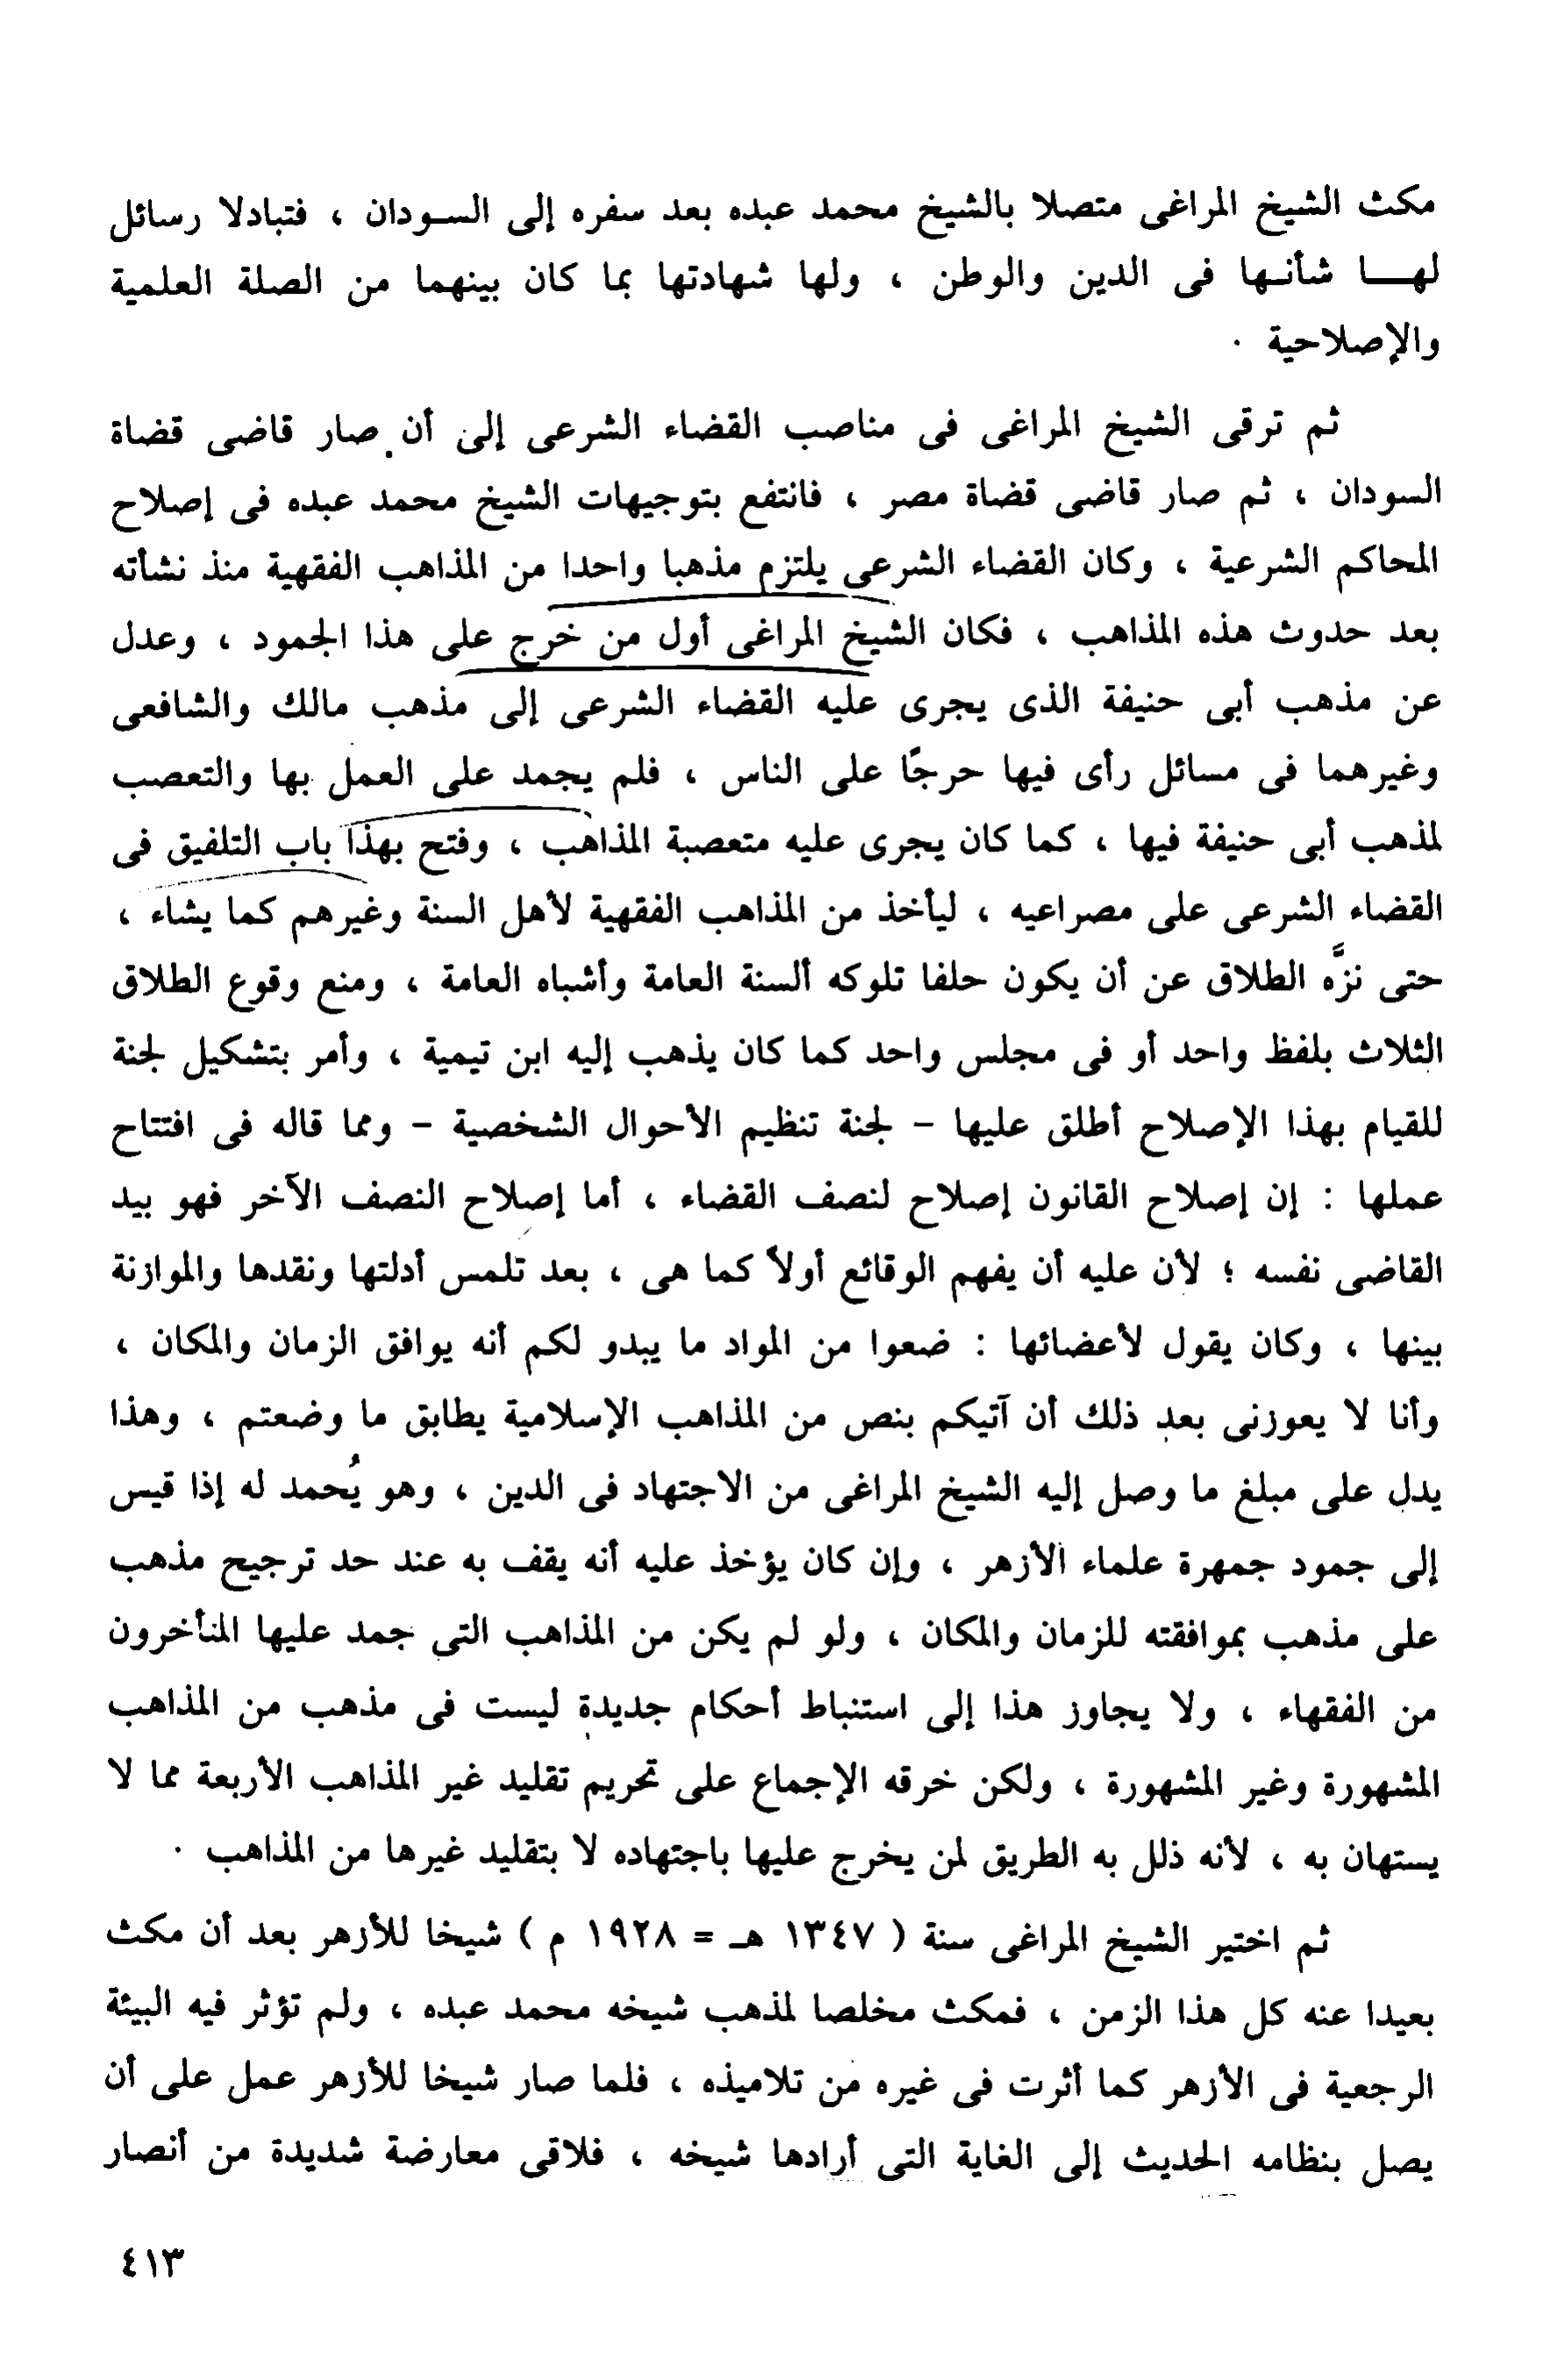 مكث الشيخ المراغى متصلا بالشيخ محمد عبده بعد سفره إلى السودان ، فتبادلا رسائل
لهـــا شأنـها فى الدين والوطن ، ولها شهادتها بما كان بينهما من الصلة العلمية
والإصلاحية .
ثم ترقى الشيخ المراغى فى مناصب القضاء الشرعى إلى أن صار قاضى قضاة
السودان ، ثم صار قاضى قضاة مصر ، فانتفع بتوجيهات الشيخ محمد عبده فى إصلاح
المحاكم الشرعية ، وكان القضاء الشرعى يلتزم مذهبا واحدا من المذاهب الفقهية منذ نشأته
بعد حدوث هذه المذاهب ، فكان الشيخ المراغى أول من خرج على هذا الجمود ، وعدل
عن مذهب أبى حنيفة الذى يجرى عليه القضاء الشرعى إلى مذهب مالك والشافعى
وغيرهما فى مسائل رأى فيها حرجًا على الناس ، فلم يجمد على العمل بها والتعصب
لمذهب أبى حنيفة فيها ، كما كان يجرى عليه متعصبة المذاهب ، وفتح بهذا باب التلفيق فى
القضاء الشرعى على مصراعيه ، ليأخذ من المذاهب الفقهية لأهل السنة وغيرهم كما يشاء ،
حتى نزَّه الطلاق عن أن يكون حلفا تلوكه ألسنة العامة وأشباه العامة ، ومنع وقوع الطلاق
الثلاث بلفظ واحد أو فى مجلس واحد كما كان يذهب إليه ابن تيمية ، وأمر بتشكيل لجنة
للقيام بهذا الإصلاح أطلق عليها - لجنة تنظيم الأحوال الشخصية - ومما قاله فى افتتاح
عملها : إن إصلاح القانون إصلاح لنصف القضاء ، أما إصلاح النصف الآخر فهو بيد
القاضى نفسه ؛ لأن عليه أن يفهم الوقائع أولاً كما هى ، بعد تلمس أدلتها ونقدها والموازنة
بينها ، وكان يقول لأعضائها : ضعوا من المواد ما يبدو لكم أنه يوافق الزمان والمكان ،
وأنا لا يعوزنى بعد ذلك أن آتيكم بنص من المذاهب الإسلامية يطابق ما وضعتم ، وهذا
يدل على مبلغ ما وصل إليه الشيخ المراغى من الاجتهاد فى الدين ، وهو يُحمد له إذا قيس
إلى جمود جمهرة علماء الأزهر ، وإن كان يؤخذ عليه أنه يقف به عند حد ترجيح مذهب
على مذهب بموافقته للزمان والمكان ، ولو لم يكن من المذاهب التى جمد عليها المتأخرون
من الفقهاء ، ولا يجاوز هذا إلى استنباط أحكام جديدة ليست فى مذهب من المذاهب
المشهورة وغير المشهورة ، ولكن خرقه الإجماع على تحريم تقليد غير المذاهب الأربعة مما لا
يستهان به ، لأنه ذلل به الطريق لمن يخرج عليها باجتهاده لا بتقليد غيرها من المذاهب .
ثم اختير الشيخ المراغى سنة ( ١٣٤٧ هـ = ١٩٢٨ م ) شيخا للأزهر بعد أن مكث
بعيدا عنه كل هذا الزمن ، فمكث مخلصا لمذهب شيخه محمد عبده ، ولم تؤثر فيه البيئة
الرجعية فى الأزهر كما أثرت فى غيره من تلاميذه ، فلما صار شيخا للأزهر عمل على أن
يصل بنظامه الحديث إلى الغاية التى أرادها شيخه ، فلاقى معارضة شديدة من أنصار
٤١٣